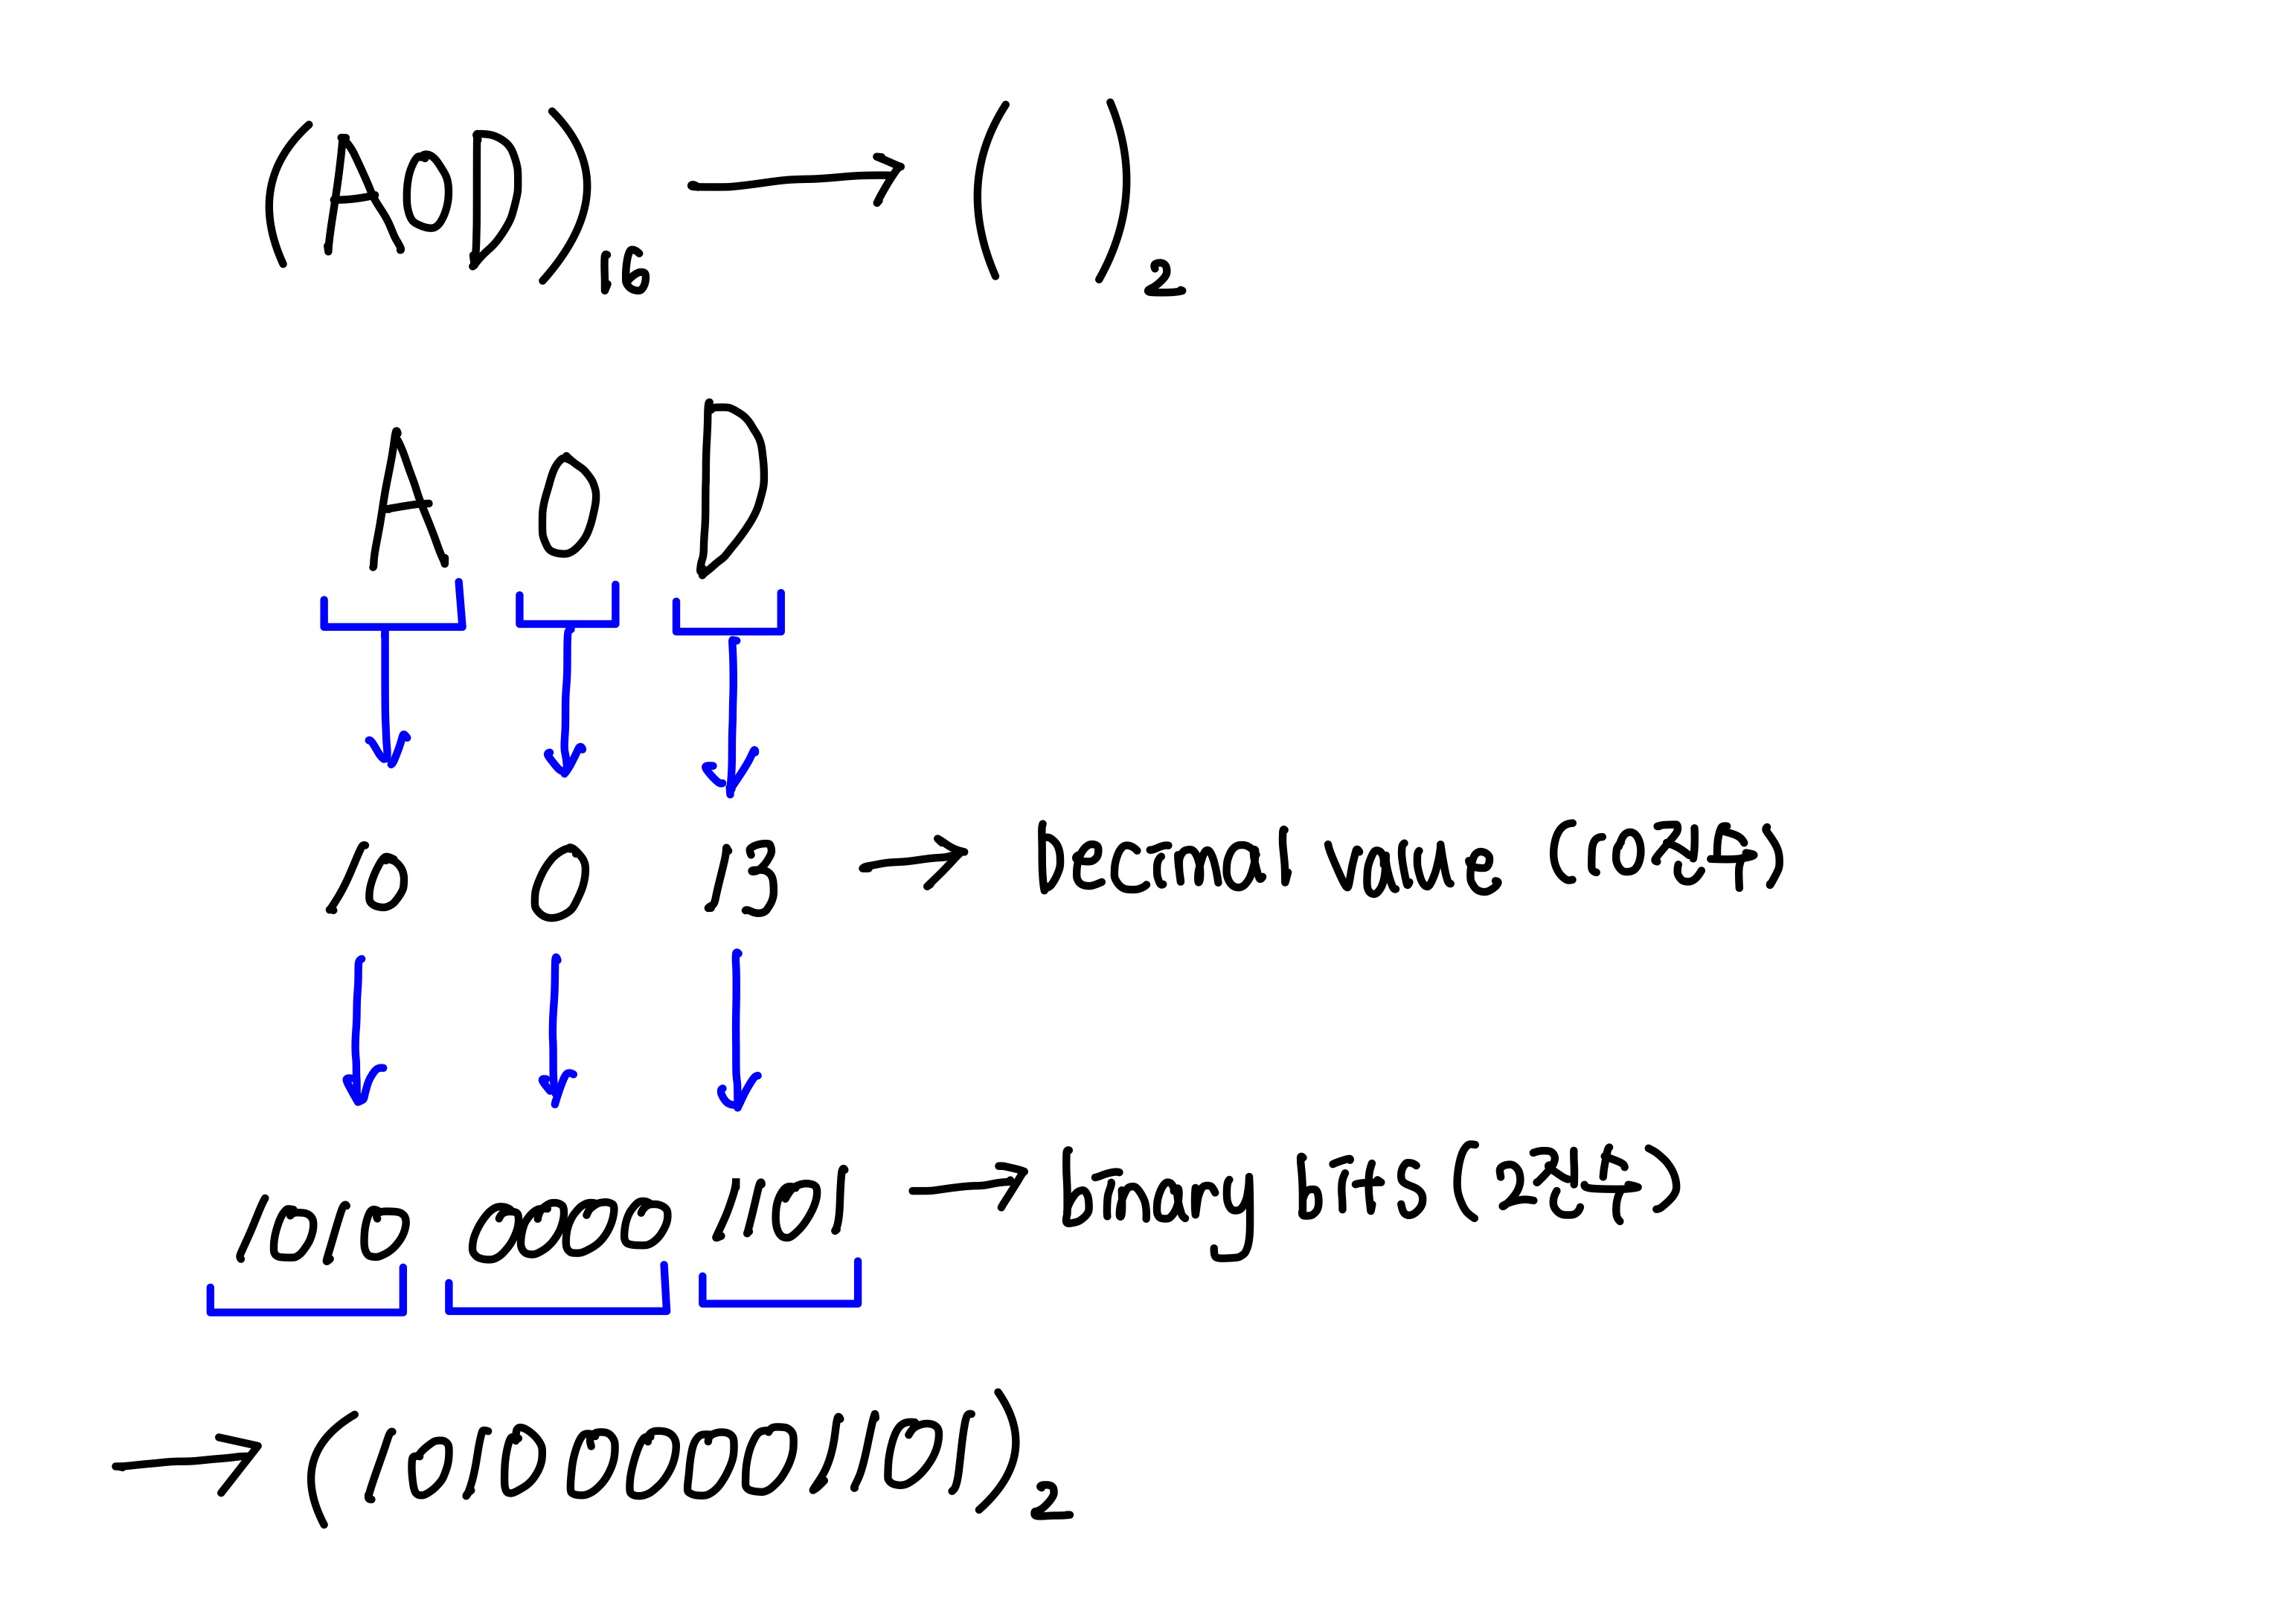 (A0D)₁₆ → ( )₂
A 0 D
10 0 13 → Decimal value (10진수)
1010 0000 1101 → binary bits (2진수)
→ (101000001101)₂